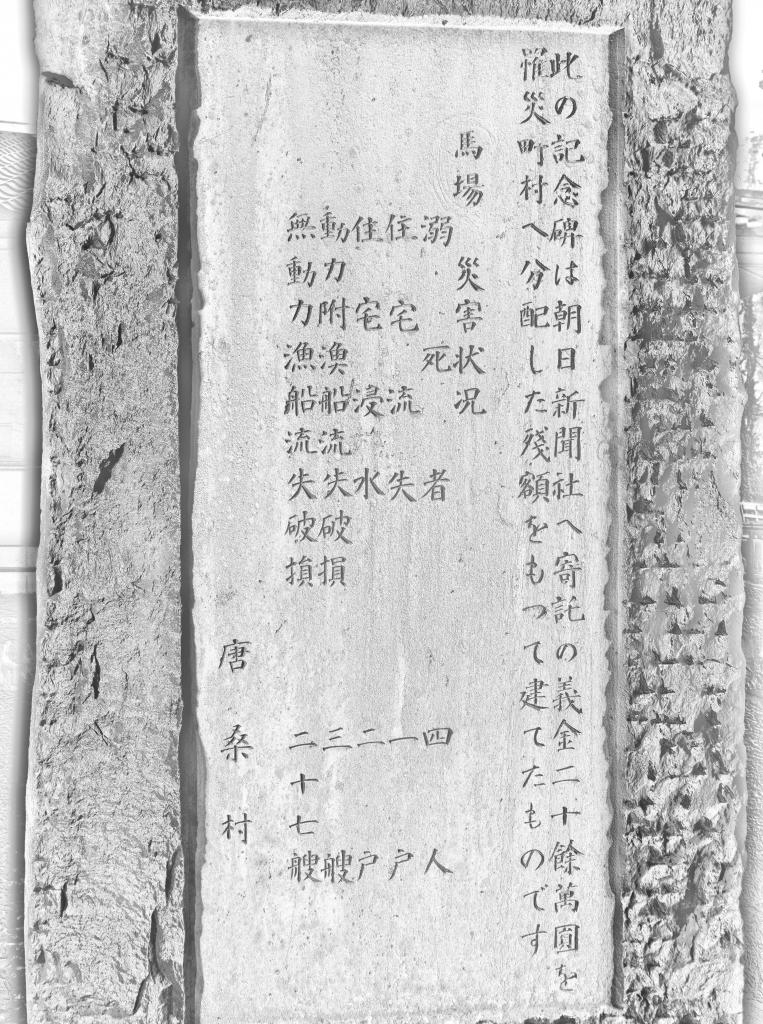 此の記念碑は朝日新聞社へ寄託の義金二十餘萬圓を
罹災町村へ分配した残額をもつて建てたものです
馬場 災害状况
溺死者 四人
住宅流失 一戸
住宅浸水 二戸
動力附漁船流失破損 三艘
無動力漁船流失破損 二十七艘
唐桑村